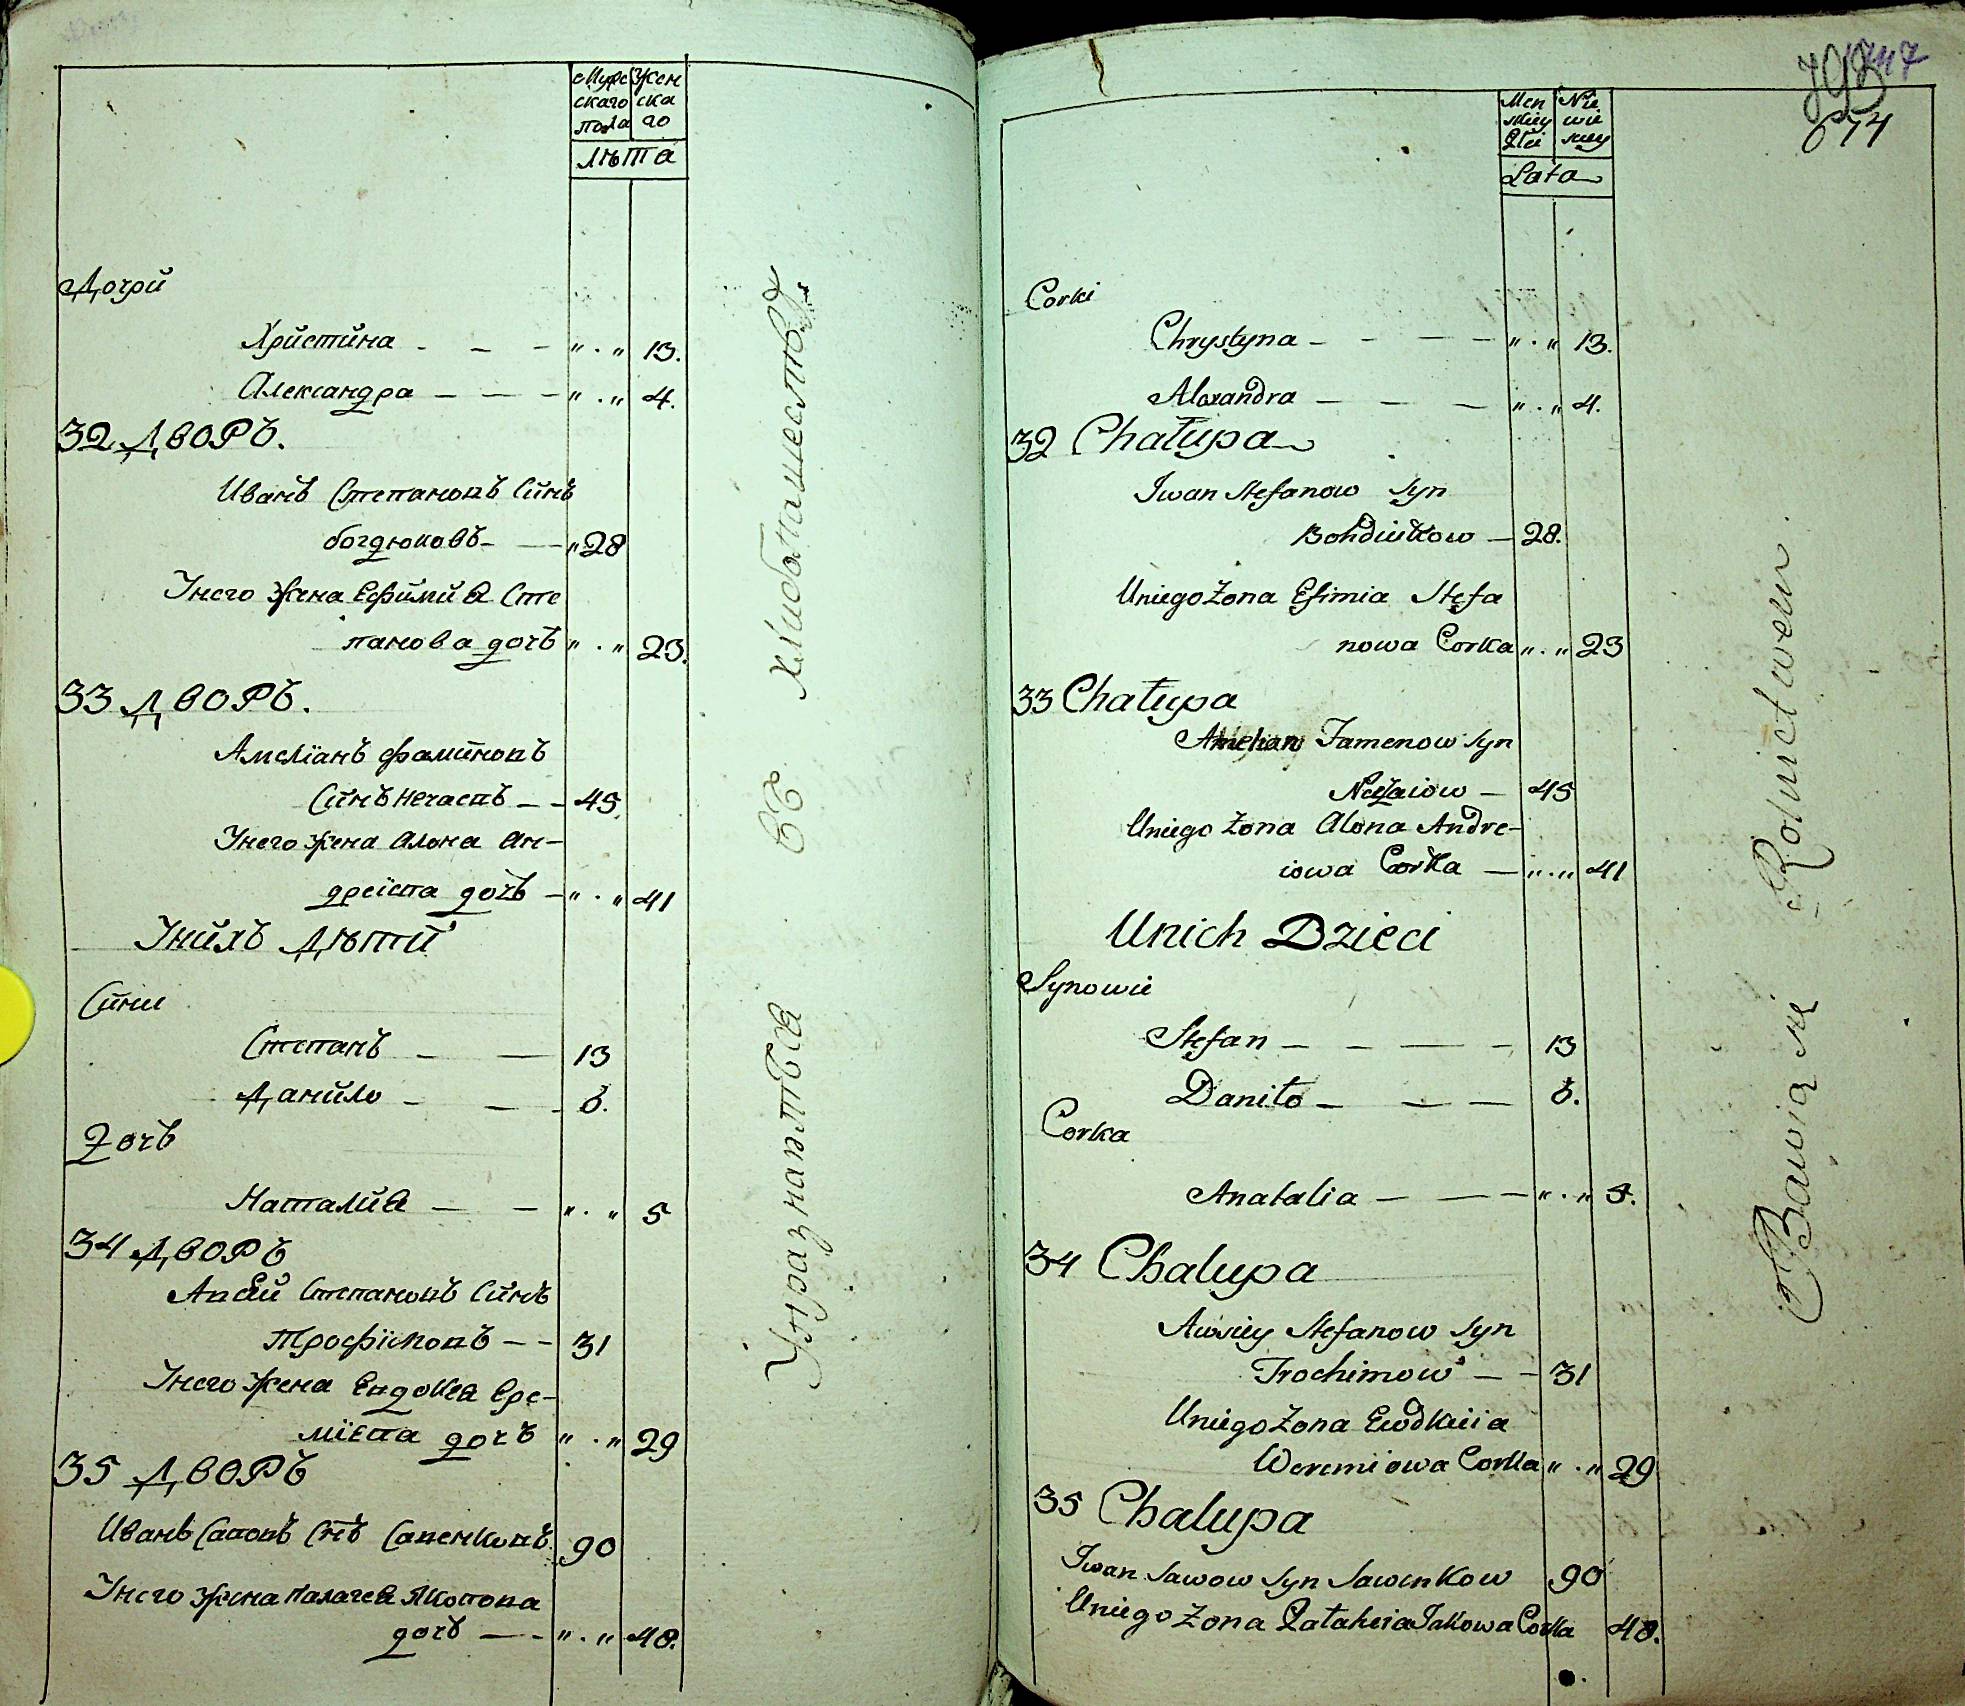 Мужс Жен
скаго ска
пола го
лѣта
Дочри
Христина - - - „ . „ 13.
Александра - - - „ . „ 4.
32 ДВОРЪ.
Иванъ Степановъ Синъ
богдюковъ - - „ 28
Унего жена Ефимия Сте
панова дочъ „ . „ 23.
33 ДВОРЪ.
Амеліанъ Фоминовъ
Синъ Нечаевъ - - 45
Унего жена Алона Ан-
дреівна дочъ - „ . „ 41
Унихъ Дѣти
Сини
Степанъ - - 13
Данило - - 6.
Дочъ
Наталия - - „ . „ 5
34 ДВОРЪ
Авсий Степановъ Синъ
Трофімовъ - - 31
Унего жена Евдокея Ере-
міева дочъ „ . „ 29
35 ДВОРЪ
Иванъ Савовъ Снъ Савенковъ 90
Унего жена Палагея Яковова
дочъ - - „ . „ 48.
Упражнаятъся въ хлибопашествѣ
747
674
Men Nie
skiey wie
Płci skiey
Lata
Corki
Chrystyna - - - - „ . „ 13.
Alexandra - - - „ . „ 4.
32 Chałupa
Iwan Stefanow Syn
Bohdiukow - 28.
Uniego Zona Efimia Stefa
nowa Corka „ . „ 23
33 Chałupa
Amelian Famenow Syn
Neczaiow - 45
Uniego Zona Alona Andre-
iowa Corka - „ . „ 41
Unich Dzieci
Synowie
Stefan - - - - 13
Daniło - - - 6.
Corka
Anatalia - - - „ . „ 5.
34 Chalupa
Awsiey Stefanow Syn
Trochimow - - 31
Uniego Zona Ewdkieiia
Weremiowa Corka „ . „ 29
35 Chalupa
Iwan Sawow Syn Sawenkow 90
Uniego Zona Pałaheia Jakowa Corka 48.
Bawią się Rolnictwem